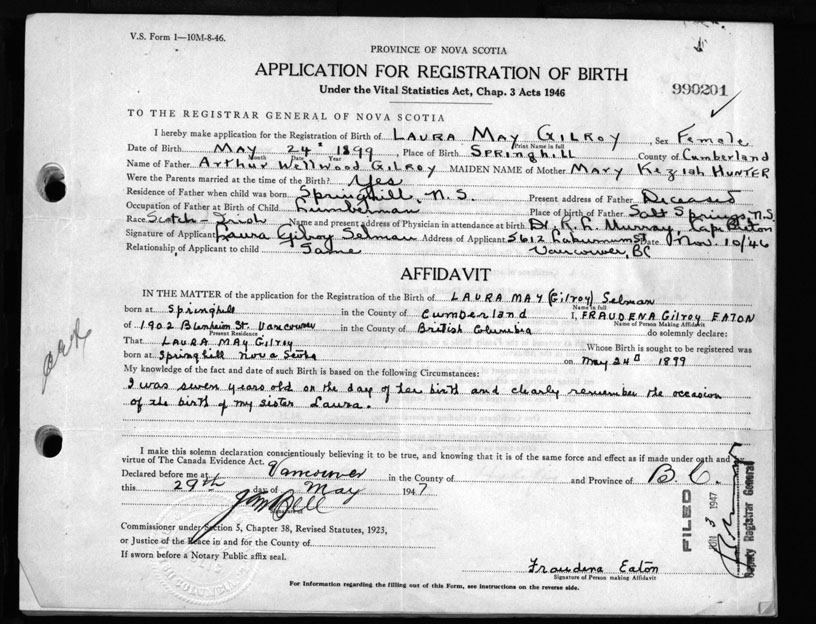 V.S. Form 1—10M-8-46.
PROVINCE OF NOVA SCOTIA
APPLICATION FOR REGISTRATION OF BIRTH
Under the Vital Statistics Act, Chap. 3 Acts 1946
990201
TO THE REGISTRAR GENERAL OF NOVA SCOTIA
I hereby make application for the Registration of Birth of LAURA MAY GILROY, Sex Female
Print Name in full
Date of Birth MAY 24 1899, Place of Birth SPRINGHILL County of Cumberland
Month Date Year
Name of Father Arthur Wellwood GILROY MAIDEN NAME of Mother MARY Keziah HUNTER
Were the Parents married at the time of the Birth? Yes
Residence of Father when child was born Springhill, N.S. Present address of Father Deceased
Occupation of Father at Birth of Child Lumberman Place of Birth of Father Salt Springs, N.S.
Race Scotch-Irish Name and present address of Physician in attendance at birth Dr. R. L. Murray, Cape Breton
Signature of Applicant Laura Gilroy Selman Address of Applicant 5612 Laburnum St Date Nov. 10/46
Relationship of Applicant to child Same Vancouver, BC
AFFIDAVIT
IN THE MATTER of the application for the Registration of the Birth of LAURA MAY (Gilroy) Selman
Name in full
born at Springhill in the County of Cumberland I, FRAUDENA Gilroy EATON
Name of Person Making Affidavit
of 1902 Blenheim St. Vancouver in the County of British Columbia do solemnly declare:
Present Residence
That LAURA MAY Gilroy Whose Birth is sought to be registered was
born at Springhill Nova Scotia on May 24 1899
My knowledge of the fact and date of such Birth is based on the following Circumstances:
I was seven years old on the day of her birth and clearly remember the occasion
of the birth of my sister Laura.
I make this solemn declaration conscientiously believing it to be true, and knowing that it is of the same force and effect as if made under oath and by
virtue of The Canada Evidence Act.
Declared before me at Vancouver in the County of and Province of B.C.
this 29th day of May 1947
Commissioner under Section 5, Chapter 38, Revised Statutes, 1923,
or Justice of the Peace in and for the County of
If sworn before a Notary Public affix seal.
FILED
3 1947
Deputy Registrar General
Fraudena Eaton
Signature of Person making Affidavit
For Information regarding the filling out of this Form, see instructions on the reverse side.